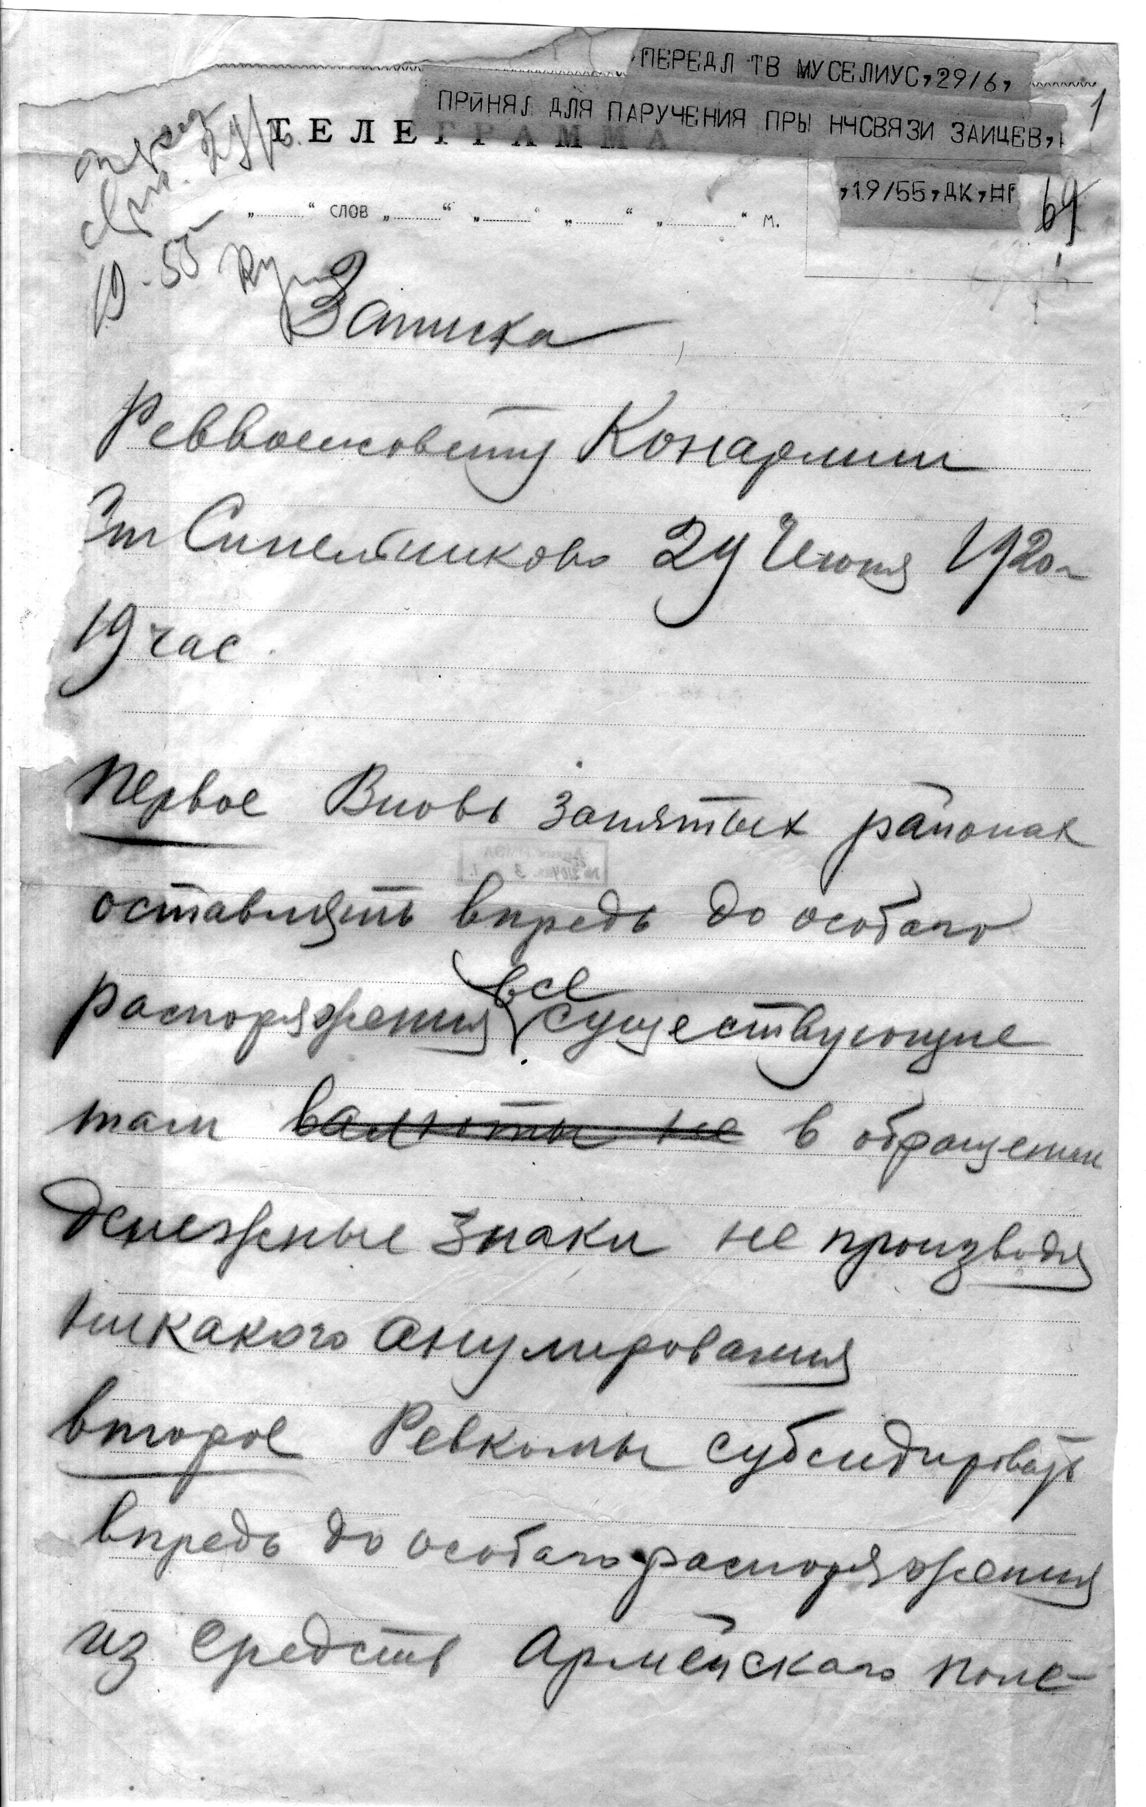 ПЕРЕДЛ ТВ МУСЕЛИУС,29/6,
ПРИНЯЛ ДЛЯ ПАРУЧЕНИЯ ПРЫ НЧСВЯЗИ ЗАИЦЕВ,
1
ТЕЛЕГРАММА
29/6.
,19/55,ДК,НГ
64
„ “ слов „ “ „ “ „ “ „ “ м.
19-55
Записка
Реввоенсовету Конармии
Зт Синельниково 29 Июня 1920г
19 час.
Первое Вновь занятых районах
оставлять впредь до особаго
все
распоряжения существующие
там валюты не в обращении
денежные знаки не производя
никакого анулирования
второе Ревкомы субсидировать
впредь до особаго распоряжения
из средств Армейского поле-